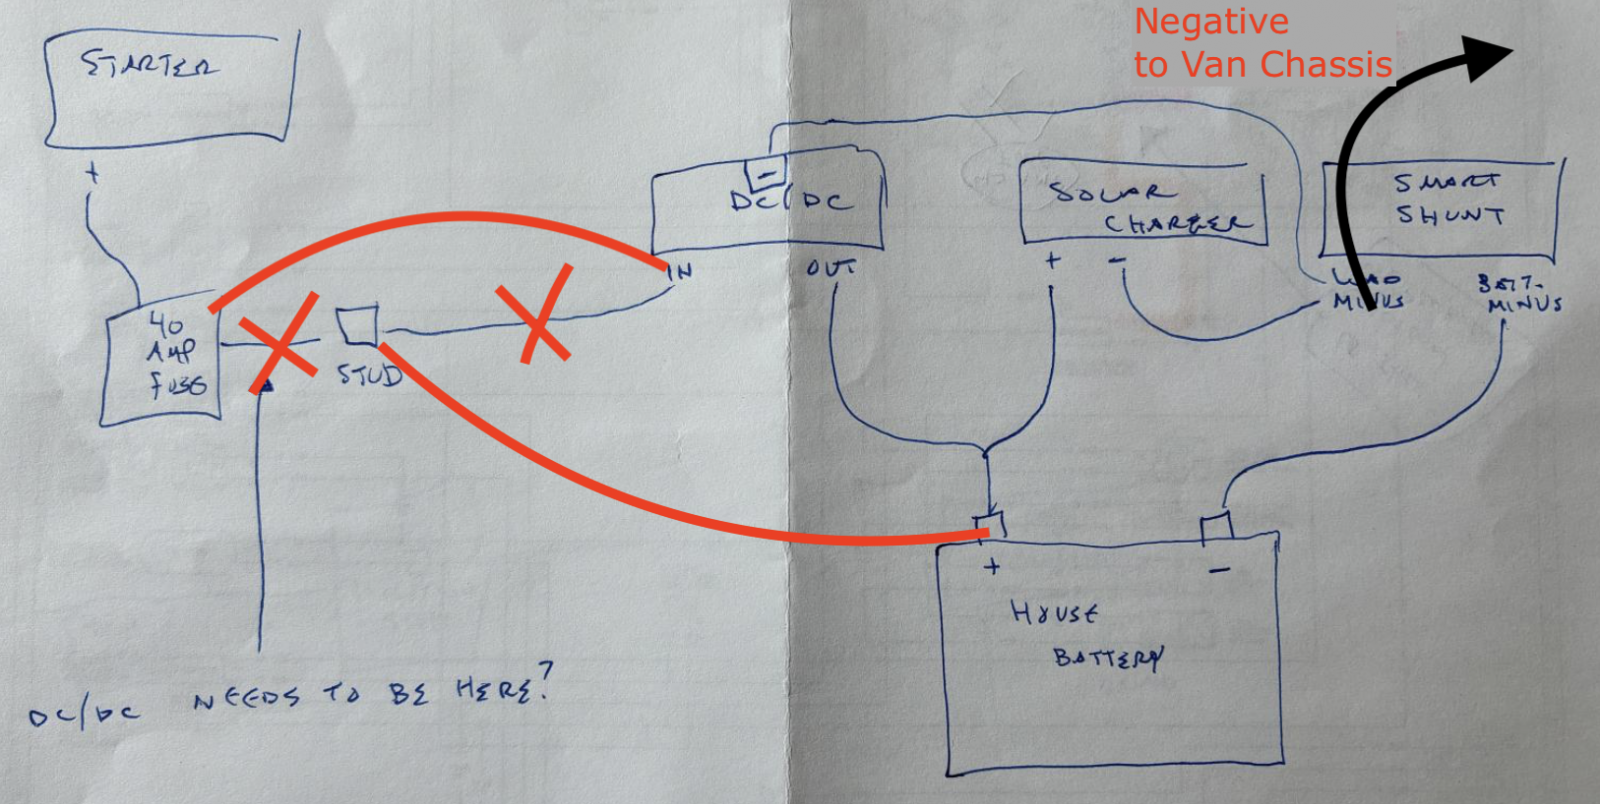 Negative
to Van Chassis
STARTER
+
40
AMP
FUSE
STUD
-
DC/DC
IN
OUT
SOLAR
CHARGER
+ -
SMART
SHUNT
LOAD
MINUS
BATT-
MINUS
+ -
HOUSE
BATTERY
DC/DC NEEDS TO BE HERE?